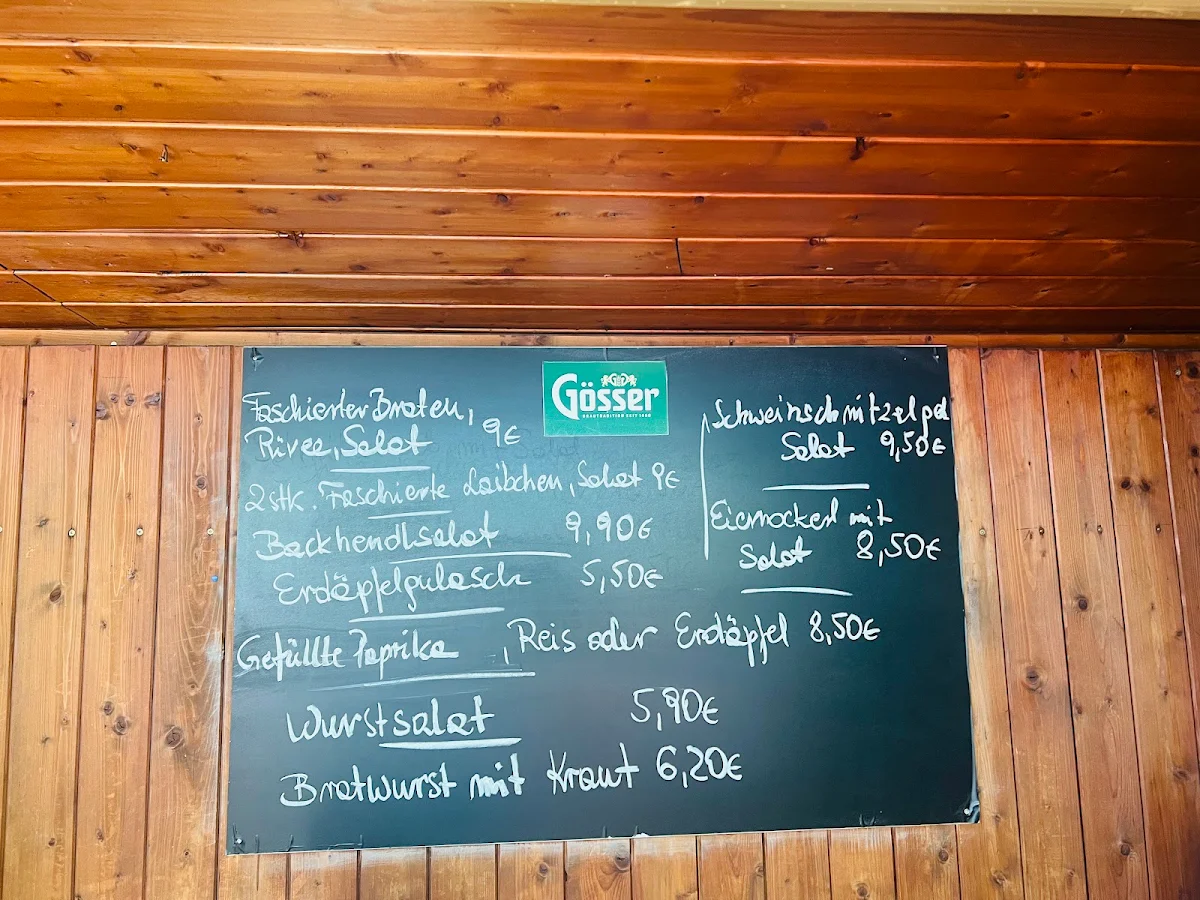 Gösser
Faschierter Braten,
Püree, Salat 9€
2 stk. Faschierte Laibchen, Salat 9€
Backhendlsalat 9,90€
Erdäpfelgulasch 5,50€
Gefüllte Paprika , Reis oder Erdäpfel 8,50€
Wurstsalat 5,90€
Bratwurst mit Kraut 6,20€
Schweinschnitzel gef
Salat 9,50€
Eiernockerl mit
Salat 8,50€